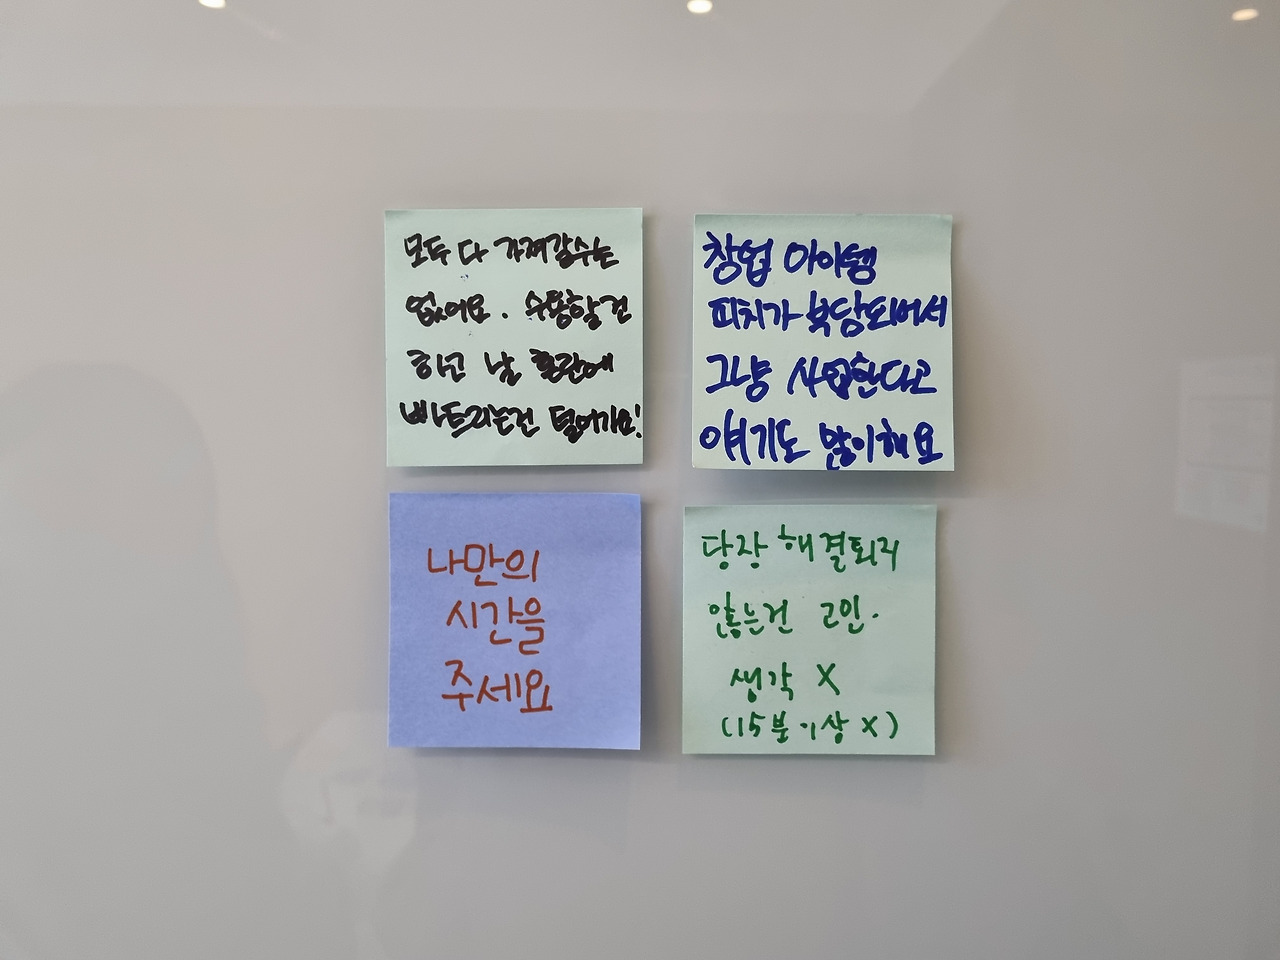 모두 다 가져갈수는
없어요. 수용할건
하고 날 혼란에
빠트리는건 털어가요!
창업 아이템
피치가 부담되어서
그냥 사업한다고
얘기도 많이해요
나만의
시간을
주세요
당장 해결되지
않는건 고민.
생각 X
(15분이상 X)